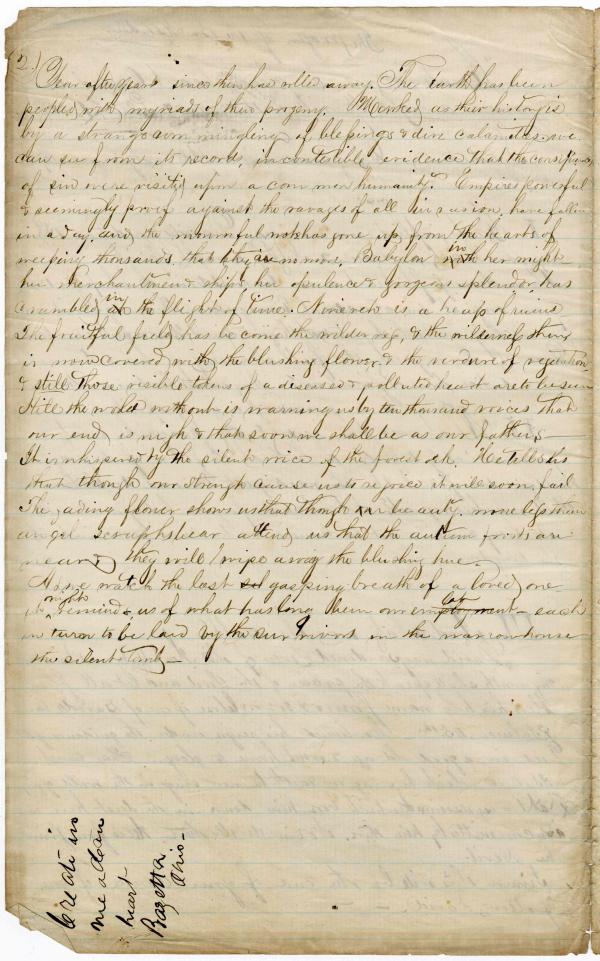 (2.)
Year after year since then has rolled away. The earth has been
peopled with myriads of their progeny. Marked as their history is
by a strange com mingling of blessings & dire calamities. we
can see from its records, incontestible evidence that the consequences
of sin were visited upon a com mon humanity. Empires powerful
& seemingly proof against the ravages of all invasion, have fallen
in a day, and the mournful note has gone up from the hearts of
weeping thousands, that they are no more. Babylon in her might
her Merchantmen & ships, her opulence & gorgeous splendor, has
crumbled in the flight of time. Nineveh is a heap of ruins
The fruitful field has be come the wilderness, & the wilderness
is now covered with the blushing flower & the verdure of vegetation
& still those visible tokens of a diseased & polluted heart are to be seen
All the world without is warning us by ten thousand voices that
our end is nigh & that soon we shall be as our fathers
It is whispered by the silent voice of the forest oak. He tells us
that though our strength cause us to rejoice it will soon fail
The fading flower shows us that though our beauty, none less than
angel seraphs bear attend us that the autum frosts are
near & they will wipe away the blushing hue.
As we watch the last gasping breath of a loved one
it might remind us of what has long been our lot each
in turn to be laid by the survivors in the narrow house
the silent tomb
Create in
me a clean
heart
Bazetta
Ohio